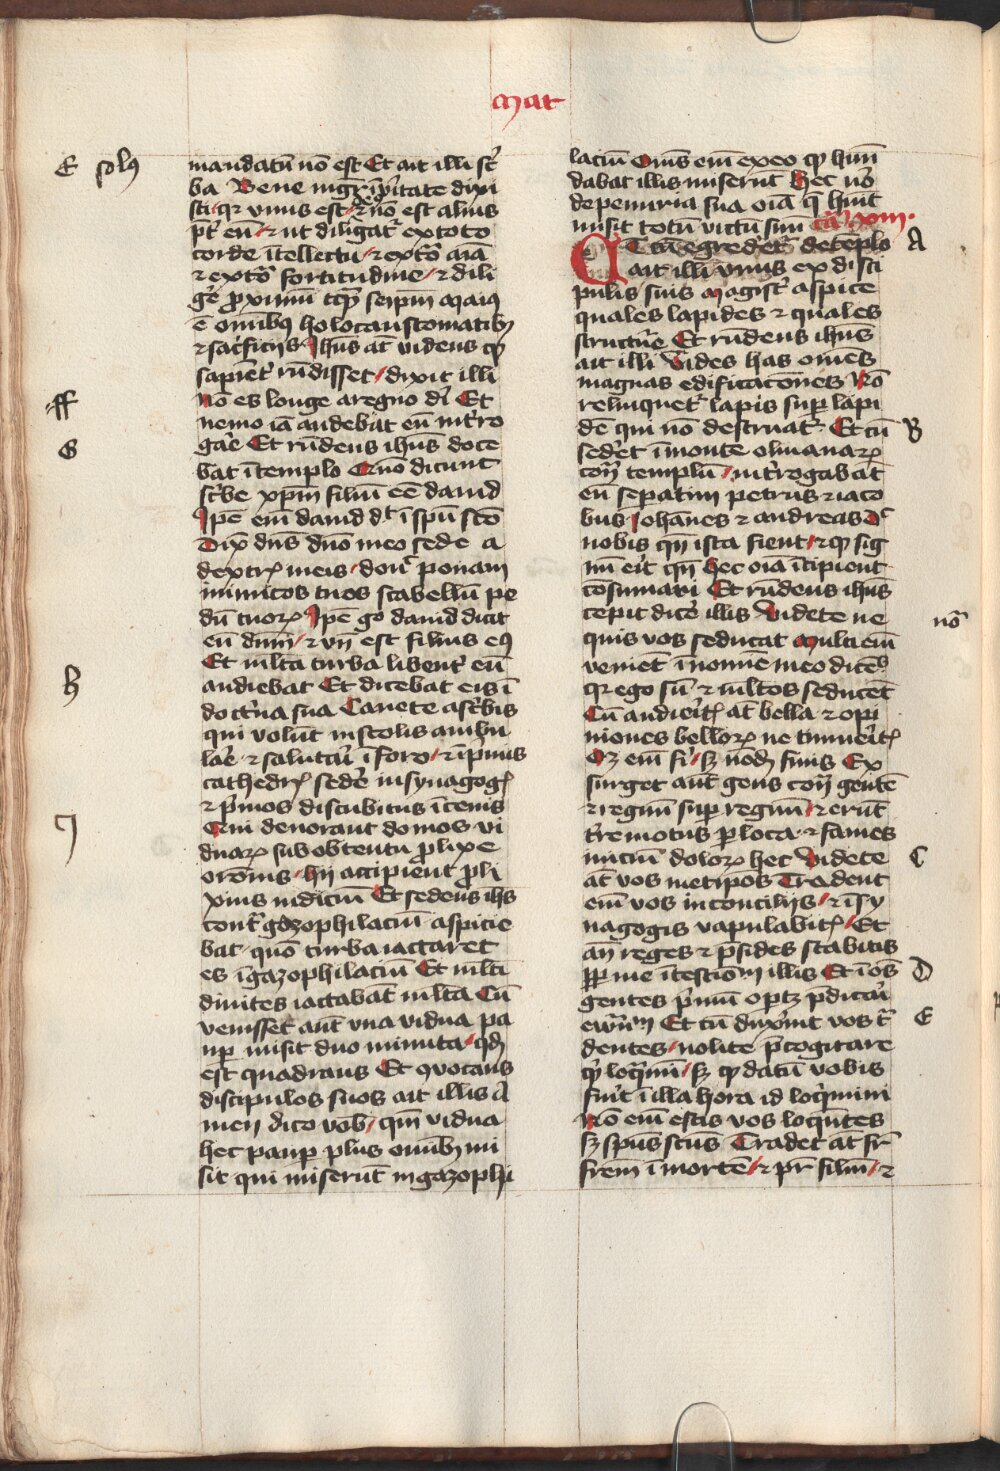 Mat
E solꝰ
mandatū nō est Et ait illi sc̄
ba Bene mgr̄ ī ỽitate dixi
sti qꝛ vnus est ⁊ nō est alius
p̄t eū ⁊ ut diligat̄ ex toto
corde ītellectu ⁊ ex tō aīa
⁊ ex tō fortitudine ⁊ dili
gē ꝓximū tq̄ seip̄m Maiꝰ
ē om̄ibꝰ holocaustomatibꝫ
⁊ sac̓ficijs Ihūs āt videns ꝙ
sapiēt̓ rn̄disset dixit illi
ff
Nō es longe a regno dī Et
nemo iā audebat eū int̓ro
G
gāe Et rn̄dens ihūs doce
bat ītemplo Quō dicunt
sc̓be xp̄m filiū eē dauid
Ipē eīm dauid dt̄ ī spū sc̄o
Dix̄ dn̄s dn̄o meo sede a
dextrꝭ meis don̄ ponam
inimicos tuos scabellū pe
dū tuoꝝ Ipē g̊ dauid dicit
eū dn̄m ⁊ vn̄ est filius eꝰ
Et ml̄ta turba libent̓ eū
H
audiebat Et dicebat eis ī
doctͥna sua Cauete a sc̓bis
qui volūt in stolis ambu
lāe ⁊ salutāi ī foro ⁊ ī pͥmis
cathedrꝭ sedē in synagogꝭ
⁊ pͥmos discubitus ī cenis
J
Qui deuorant domos vi
duaꝝ sub obtentu ꝓlixe
orōnis hij accipient ꝓli
xius iudiciū Et sedens ihs
cont̄ gazophilaciū aspicie
bat quō turba iactaret
es ī gazophilaciū Et ml̄ti
diuites iactabāt ml̄ta Cū
venisset aūt vna vidua pa
uꝑ misit duo minuta qd̄
est quadrans Et ꝯuocans
discipulos suos ait illis A
men dico vob̄ qm̄ vidua
hec pauꝑ plus om̄ibꝫ mi
sit qui miserūt in gazophi
laciū Om̄s eīm ex eo ꝙ hūn
dabāt illis miserūt Hec ỽo
de penuria sua oīa q̄ hūit
misit totū victū suū Cām xiii
A
Et cū egredēt̓ de templo
ait illi vnus ex disci
pulis suis Magist̓ aspice
quales lapides ⁊ quales
structūe Et rn̄dens ihūs
ait illi Vides has omēs
magnas edificacōnes Nō
relinquet̓ lapis suꝑ lapi
B
dē qui nō destruat̓ Et cū
sedēt ī monte oliuaꝝ
cont̓ templū int̓rogabāt
eū seꝑatim petrus ⁊ iaco
bus Iohānes ⁊ andreas Dͨ
nobis qn̄ ista fient ⁊ qͦ sig
nū eīt qn̄ hec oīa īcipient
cōsumari Et rn̄dens ihūs
nō
cepit dicē illis Videte ne
quis vos seducat Multi eīm
veniēt ī noīe meo dicētes
qꝛ ego sū ⁊ ml̄tos seducēt
Cū audieītꝭ āt bella ⁊ opi
niones belloꝝ ne timueītꝭ
Oꝫ eīm fi̓ sꝫ nōdū finis Ex
surget aūt gens cont̓ gentē
⁊ regnū suꝑ regnū ⁊ erūt
t̓remotus ꝑ loca ⁊ fames
C
iniciū doloꝝ hec Videte
āt vos metipōs Tradent
eīm vos in concilijs ⁊ ī sy
nagogis vapulabitꝭ Et
an̄ reges ⁊ p̄sides stabitis
D
ꝓp̄ me ī testioꝫ illis Et ī oēs
gentes pͥmū optꝫ p̄dicāi
E
ew̄m Et cū duxīnt vos t̓
dentes nolite p̄cogitare
qͥ loqͣmī sꝫ qd̄ datū vobis
fuīt ī illa hora id loqͥmini
Nō eīm estis vos loqn̄tes
sꝫ spūs sctūs Tradet āt fr̄
frēm ī mortē ⁊ pr̄ filiū ⁊